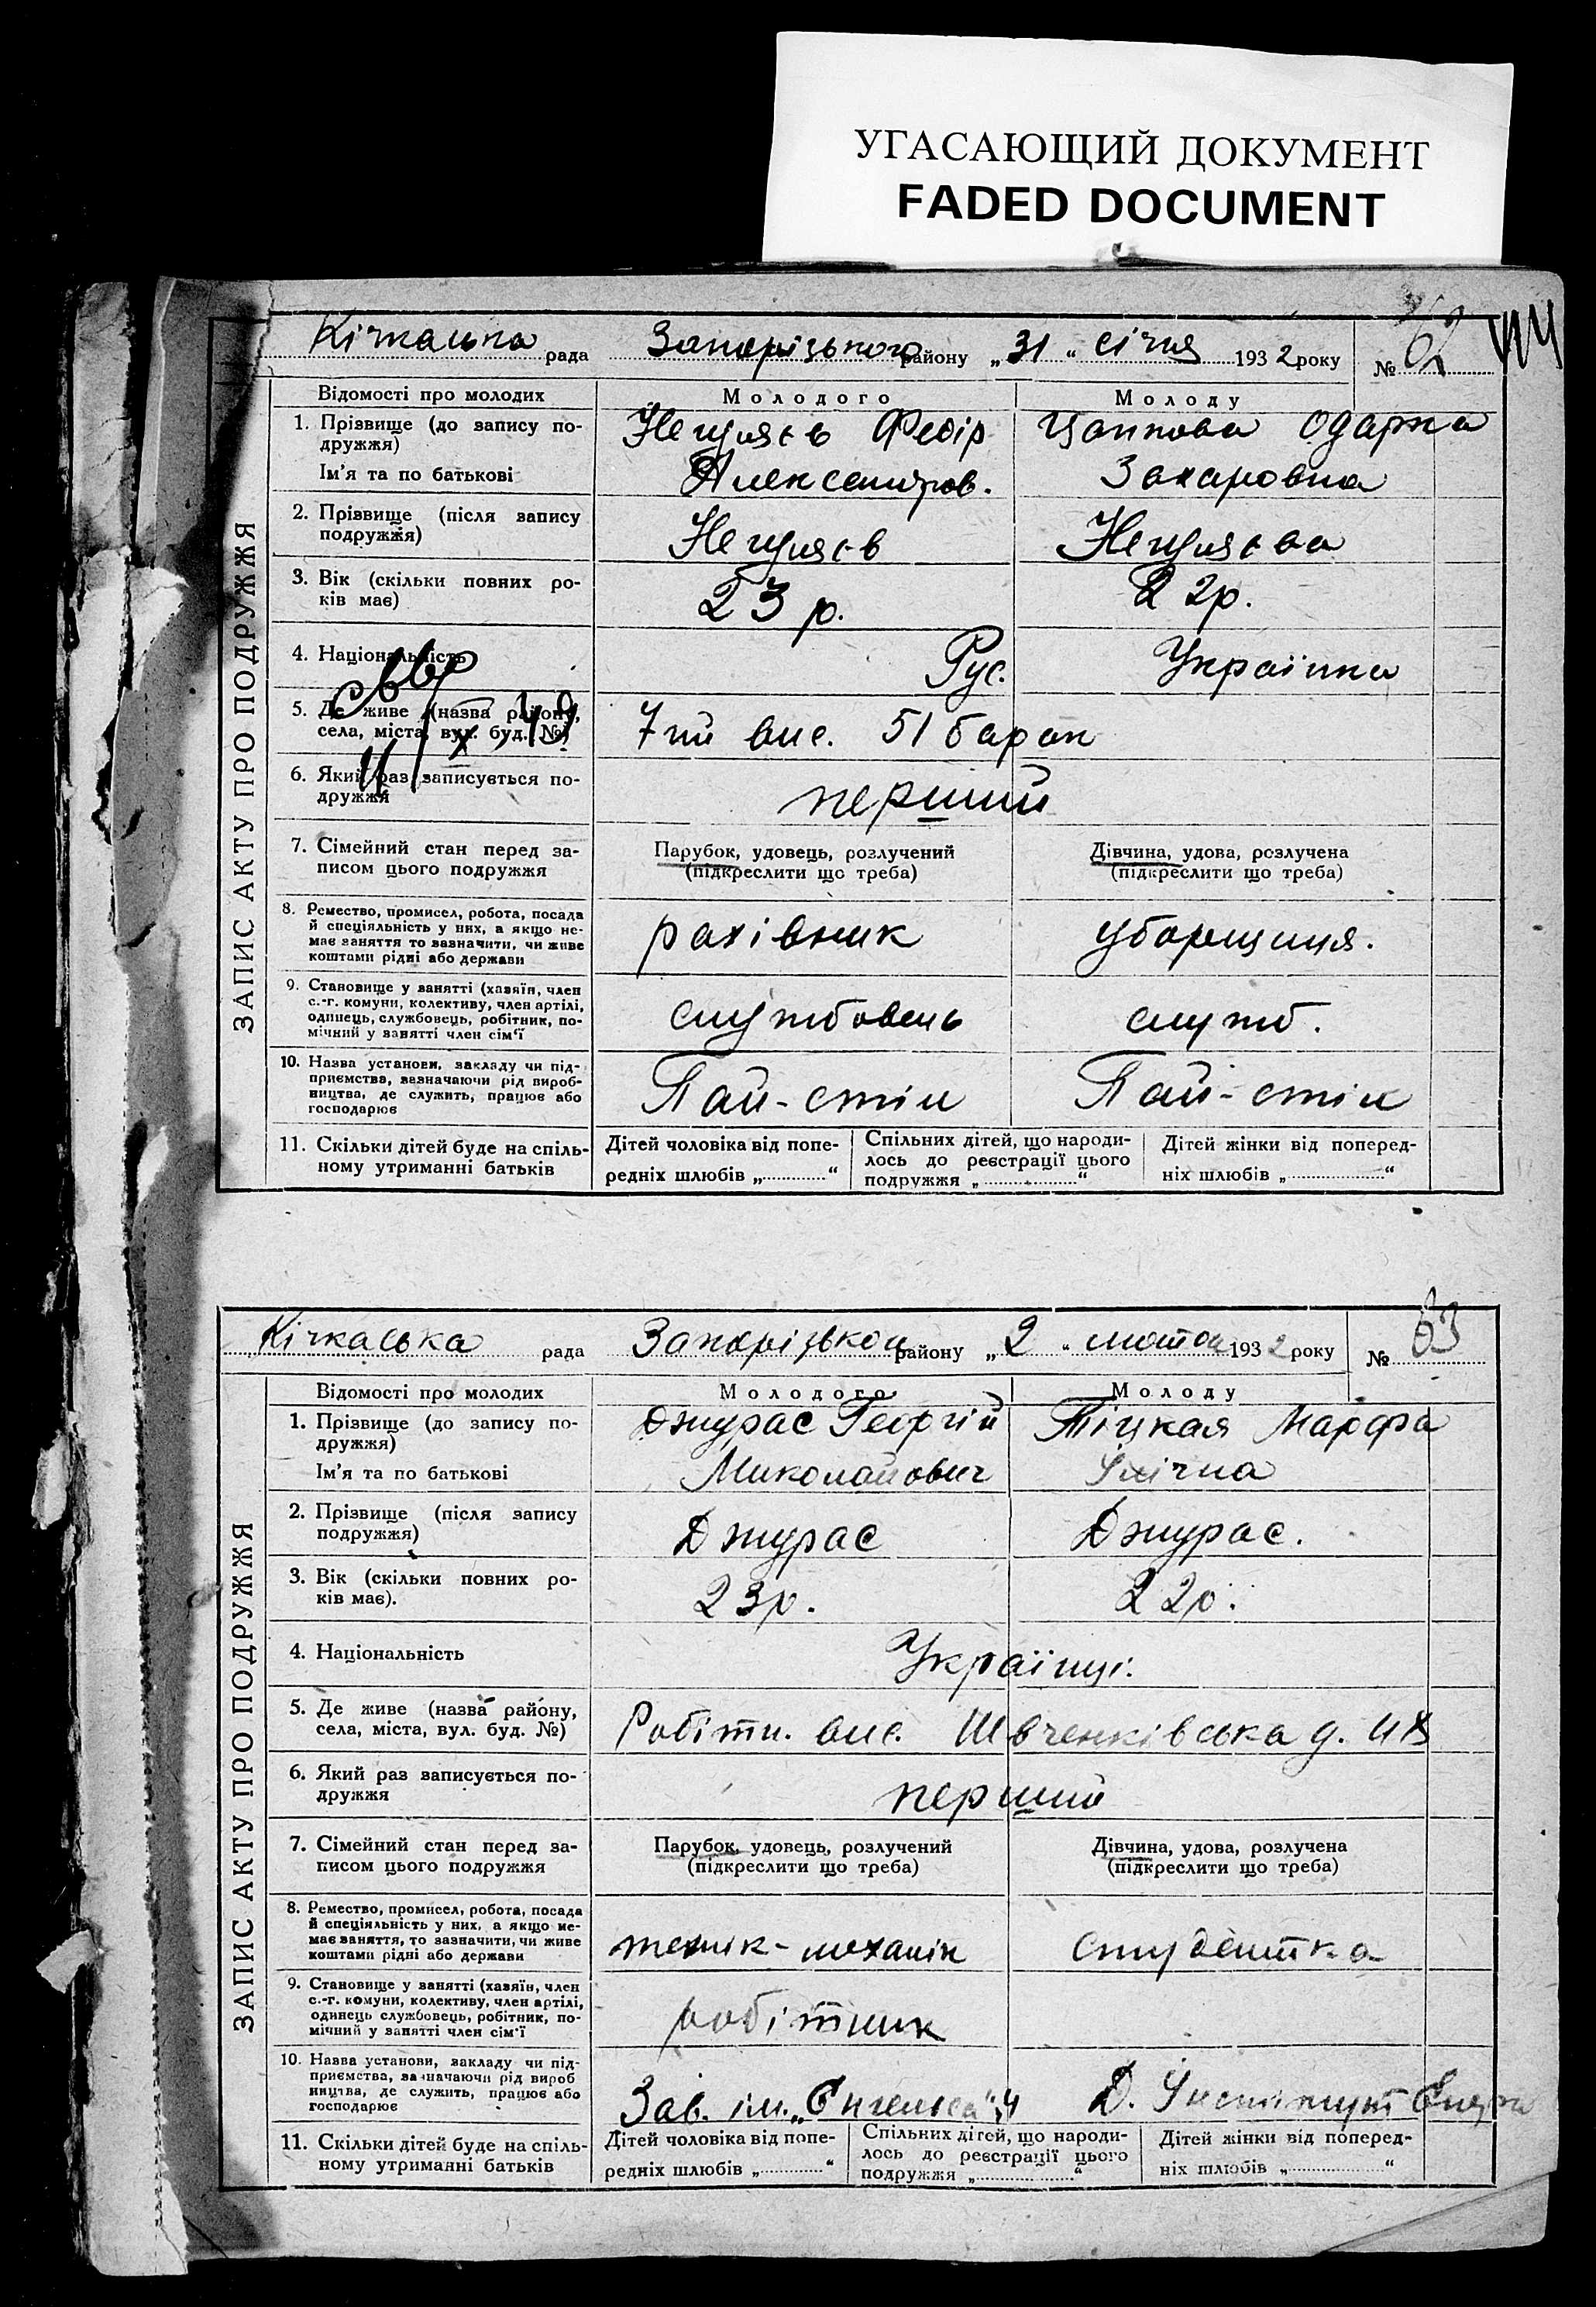 УГАСАЮЩИЙ ДОКУМЕНТ
FADED DOCUMENT
Кічкаська рада Запорізького району „31“ січня 1932 року № 62
ЗАПИС АКТУ ПРО ПОДРУЖЖЯ
Відомості про молодих Молодого Молоду
1. Прізвище (до запису по-
дружжя)
Ім'я та по батькові
Федір
Александров.
Одарка
Захаровна
2. Прізвище (після запису
подружжя)
3. Вік (скільки повних ро-
ків має)
23 р. 22р.
4. Національність
Рус. Українка
5. Де живе (назва району,
села, міста, вул. буд. №)
7ий вис. 51 барак
6. Який раз записується по-
дружжя
перший
7. Сімейний стан перед за-
писом цього подружжя
Парубок, удовець, розлучений
(підкреслити що треба)
Дівчина, удова, розлучена
(підкреслити що треба)
8. Ремество, промисел, робота, посада
й спеціяльність у них, а якщо не-
має заняття то зазначити, чи живе
коштами рідні або держави
рахівник уборщиця.
9. Становище у занятті (хазяїн, член
с.-г. комуни, колективу, член артілі,
одинець, службовець, робітник, по-
мічний у занятті член сім'ї
службовець служб.
10. Назва установи, закладу чи під-
приємства, зазначаючи рід вироб-
ництва, де служить, працює або
господарює
11. Скільки дітей буде на спіль-
ному утриманні батьків
Дітей чоловіка від попе-
редніх шлюбів „ “
Спільних дітей, що народи-
лось до реєстрації цього
подружжя „ “
Дітей жінки від поперед-
ніх шлюбів „ “
Кічкаська рада Запорізьког району „2“ лютого 1932 року № 63
ЗАПИС АКТУ ПРО ПОДРУЖЖЯ
Відомості про молодих Молодого Молоду
1. Прізвище (до запису по-
дружжя)
Ім'я та по батькові
Джурас Георгій
Миколайович
Марфа
Іллічна
2. Прізвище (після запису
подружжя)
Джурас Джурас.
3. Вік (скільки повних ро-
ків має).
23р. 22р.
4. Національність
Українці.
5. Де живе (назва району,
села, міста, вул. буд. №)
Робітн. вис. Шевченківська д. 48
6. Який раз записується по-
дружжя
перший
7. Сімейний стан перед за-
писом цього подружжя
Парубок, удовець, розлучений
(підкреслити що треба)
Дівчина, удова, розлучена
(підкреслити що треба)
8. Ремество, промисел, робота, посада
й спеціяльність у них, а якщо не-
має заняття, то зазначити, чи живе
коштами рідні або держави
технік-механік студентка
9. Становище у занятті (хазяїн, член
с.-г. комуни, колективу, член артілі,
одинець службовець, робітник, по-
мічний у занятті член сім'ї
робітник
10. Назва установи, закладу чи під-
приємства, зазначаючи рід вироб
ництва, де служить, працює або
господарює
Зав. ім. „Енгельса“ Д. Інститут
11. Скільки дітей буде на спіль-
ному утриманні батьків
Дітей чоловіка від попе-
редніх шлюбів „ “
Спільних дітей, що народи-
лось до реєстрації цього
подружжя „ “
Дітей жінки від поперед-
ніх шлюбів „ “